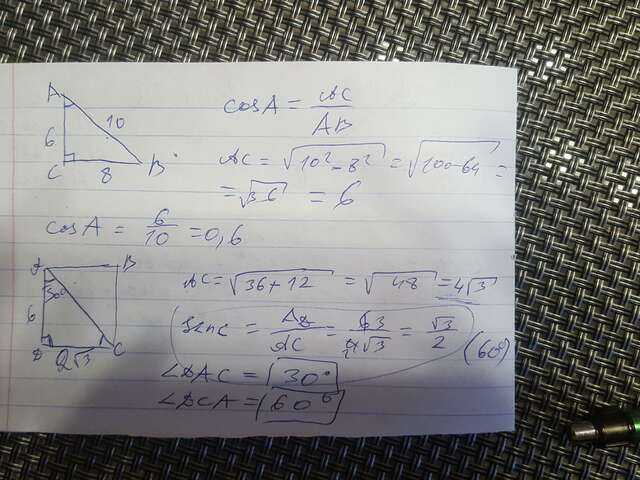 A
10
6
C
8
B
cosA = AC/AB
AC = √(10²-8²) = √(100-64) =
= √36 = 6
cosA = 6/10 = 0,6
A
B
30°
6
D
2√3
C
AC = √(36+12) = √48 = 4√3
sin C = AD/AC = = √3/2 (60°)
∠DAC = 30°
∠DCA = 60°